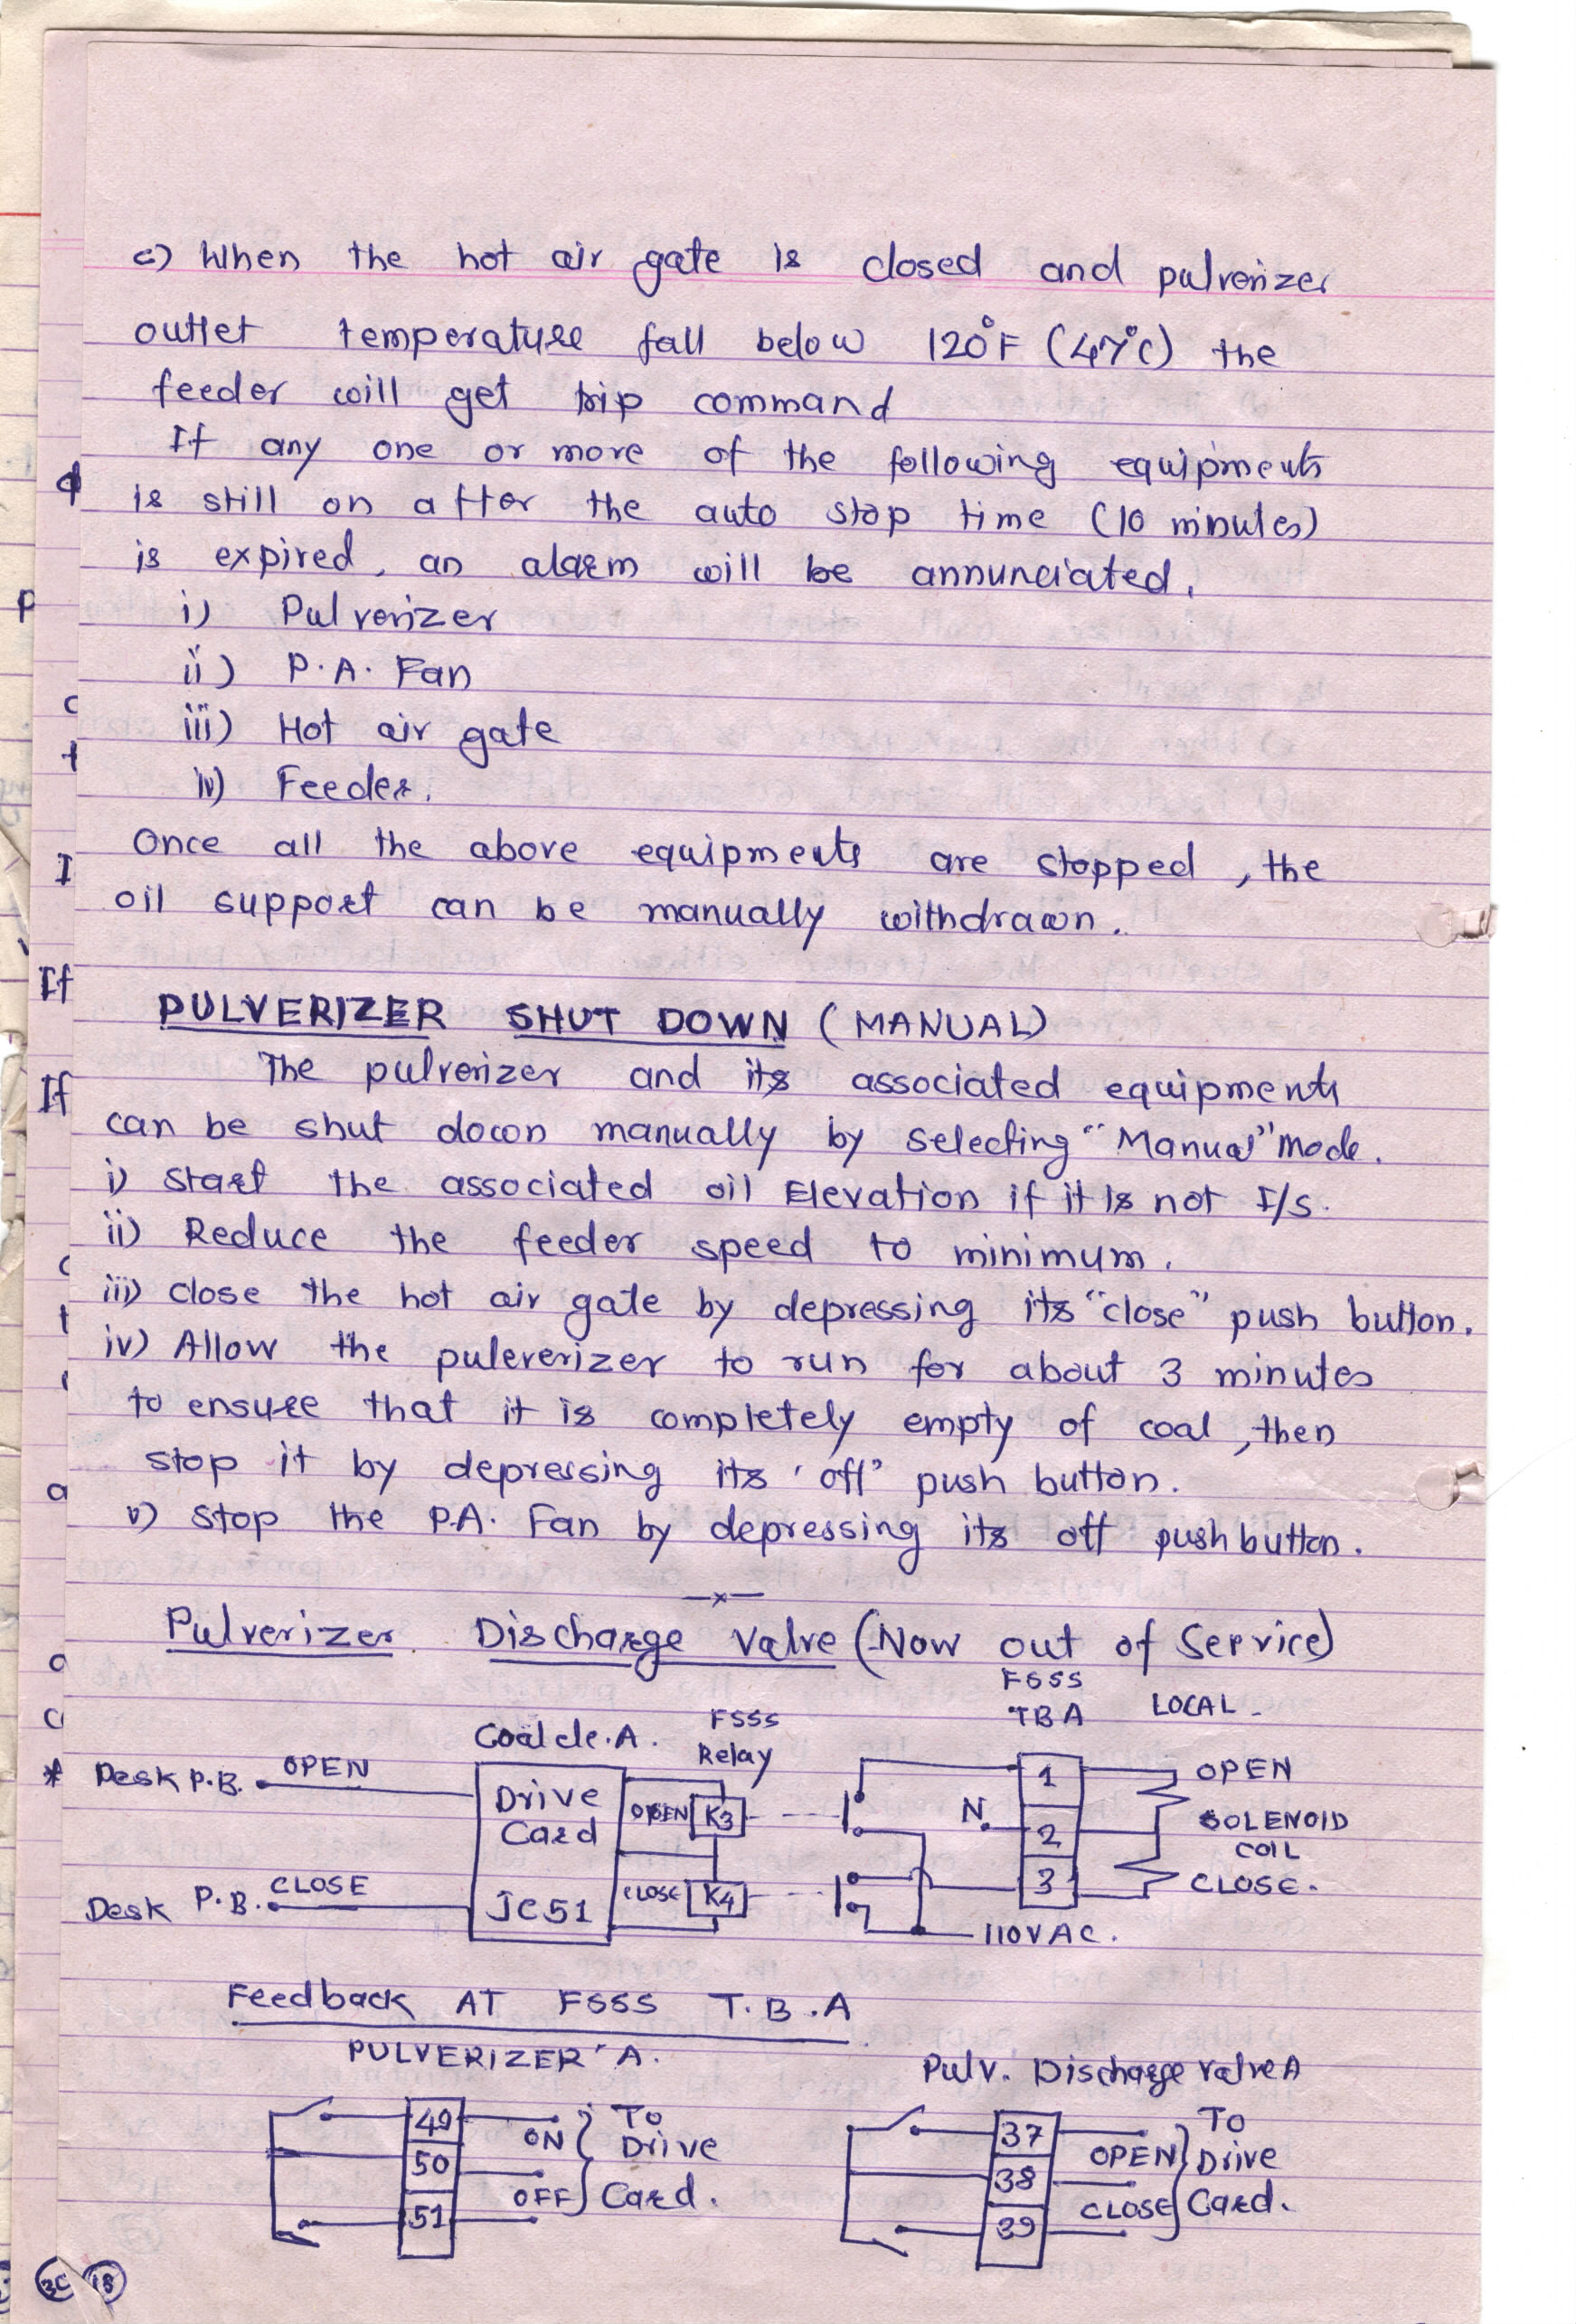 c) When the hot air gate is closed and pulverizer
outlet temperature fall below 120°F (47°C) the
feeder will get trip command
If any one or more of the following equipments
is still on after the auto stop time (10 minutes)
is expired, an alarm will be annunciated.
i) Pulverizer
ii) P.A. Fan
iii) Hot air gate
iv) Feeder.
Once all the above equipments are stopped, the
oil support can be manually withdrawn.
PULVERIZER SHUT DOWN (MANUAL)
The pulverizer and its associated equipments
can be shut down manually by selecting "Manual" mode.
i) Start the associated oil Elevation if it is not I/S.
ii) Reduce the feeder speed to minimum.
iii) close the hot air gate by depressing its "close" push button.
iv) Allow the puleverizer to run for about 3 minutes
to ensure that it is completely empty of coal, then
stop it by depressing its 'off' push button.
v) Stop the P.A. Fan by depressing its off push button.
—x—
Pulverizer Discharge Valve (Now out of Service)
Coal ele. A. FSSS Relay FSSS TBA LOCAL
* Desk P.B. OPEN Drive Card OPEN K3 N 1 2 3 OPEN
SOLENOID COIL
Desk P.B. CLOSE JC51 CLOSE K4 CLOSE.
110V AC.
Feedback AT FSSS T.B.A
PULVERIZER 'A. Pulv. Discharge Valve A
49 ON To Drive Card. 37 OPEN To Drive Card.
50 OFF 38 CLOSE
51 39
3C 18